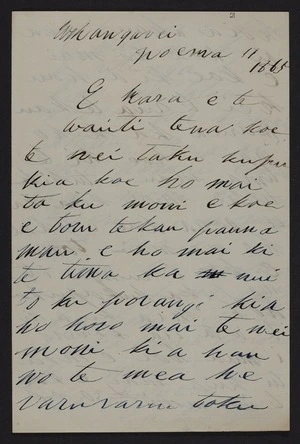 Whanganui
noema 11
1865
E kara e te
waiti tena koe
te nei taku kupu
kia koe ho mai
ta ku moni e koe
e toru tekau pauna
mau e ho mai ki
te tima ka nui
to ku porangi kia
ho horo mai te nei
moni ki a hau
no te mea he
raruraru toku